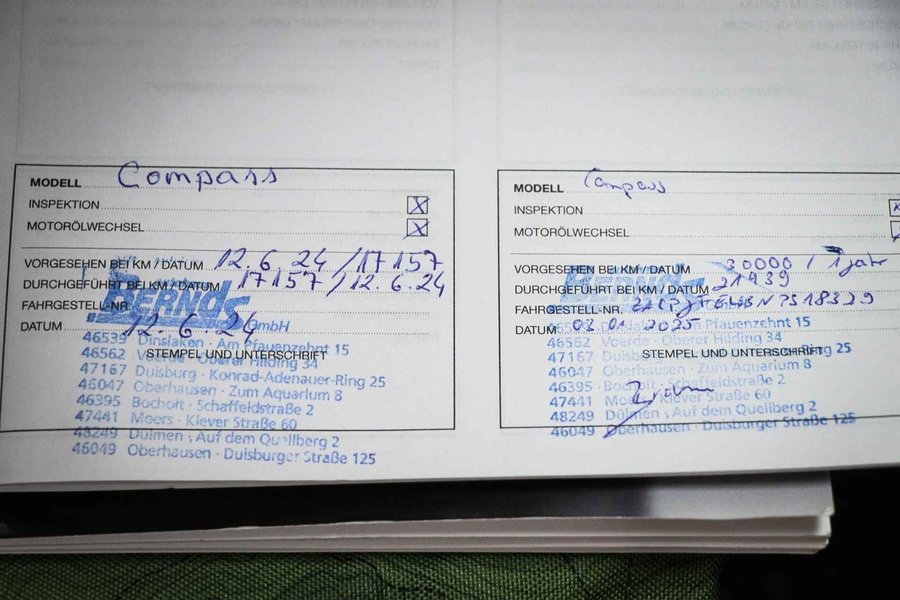 MODELL Compass
INSPEKTION X
MOTORÖLWECHSEL X
VORGESEHEN BEI KM / DATUM 12.6.24 / 17157
DURCHGEFÜHRT BEI KM / DATUM 17157 / 12.6.24
FAHRGESTELL-NR.
BERNDS GmbH
DATUM 12.6.24
46539 Dinslaken · Am Pfauenzehnt 15
46562 Voerde · Oberer Hilding 34
STEMPEL UND UNTERSCHRIFT
47167 Duisburg · Konrad-Adenauer-Ring 25
46047 Oberhausen · Zum Aquarium 8
46395 Bocholt · Schaffeldstraße 2
47441 Moers · Klever Straße 60
48249 Dülmen · Auf dem Quellberg 2
46049 Oberhausen · Duisburger Straße 125
MODELL Compass
INSPEKTION X
MOTORÖLWECHSEL
VORGESEHEN BEI KM / DATUM 30000 / 1 Jahr
DURCHGEFÜHRT BEI KM / DATUM 21939
FAHRGESTELL-NR.
BERNDS
DATUM 03.01.2025
Dinslaken · Am Pfauenzehnt 15
46562 Voerde · Oberer Hilding 34
STEMPEL UND UNTERSCHRIFT
47167 Duisburg Ring 25
46047 Oberhausen · Zum Aquarium 8
46395 Bocholt · Schaffeldstraße 2
47441 Moers · Klever Straße 60
48249 Dülmen · Auf dem Quellberg 2
46049 Oberhausen · Duisburger Straße 125